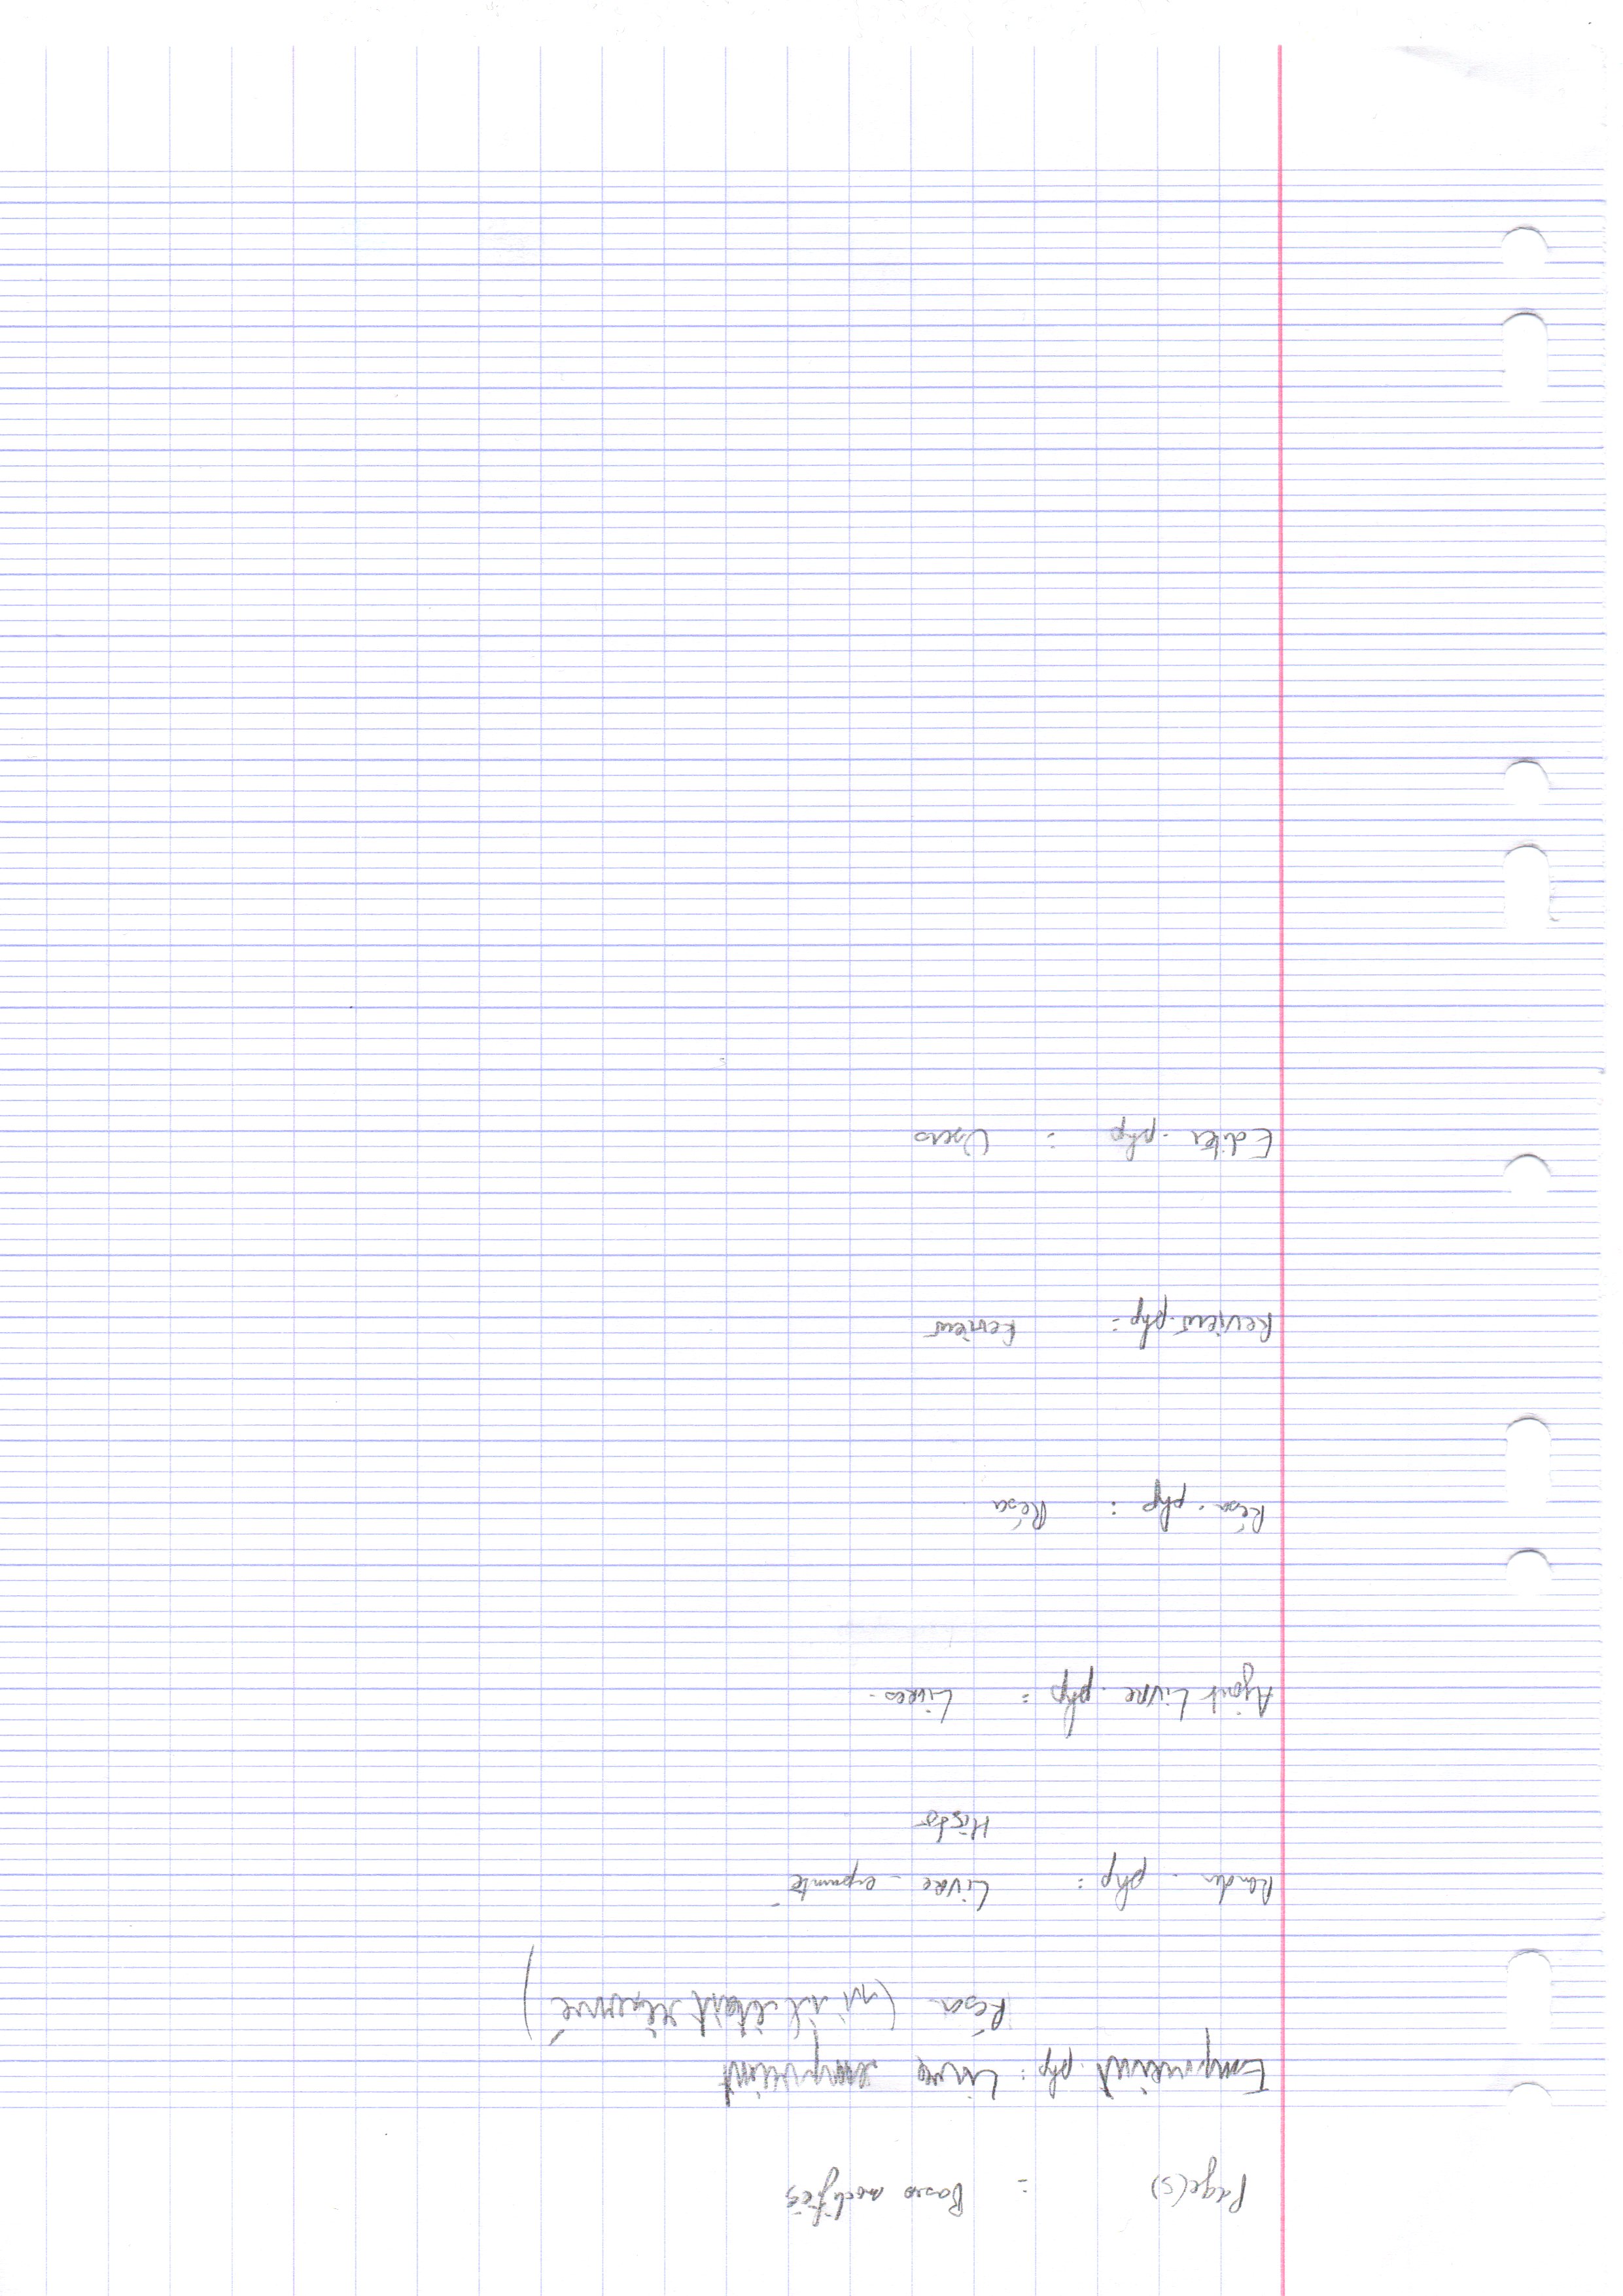 Page(s) : Bases modifiés
Empreint.php : Livre empreint
Résa (si il était réservé)
Rendu.php : Livre_emprunté
Histo
Ajout Livre.php : Livres.
Résa.php : Résa
Review.php : Review
Editer.php : Users